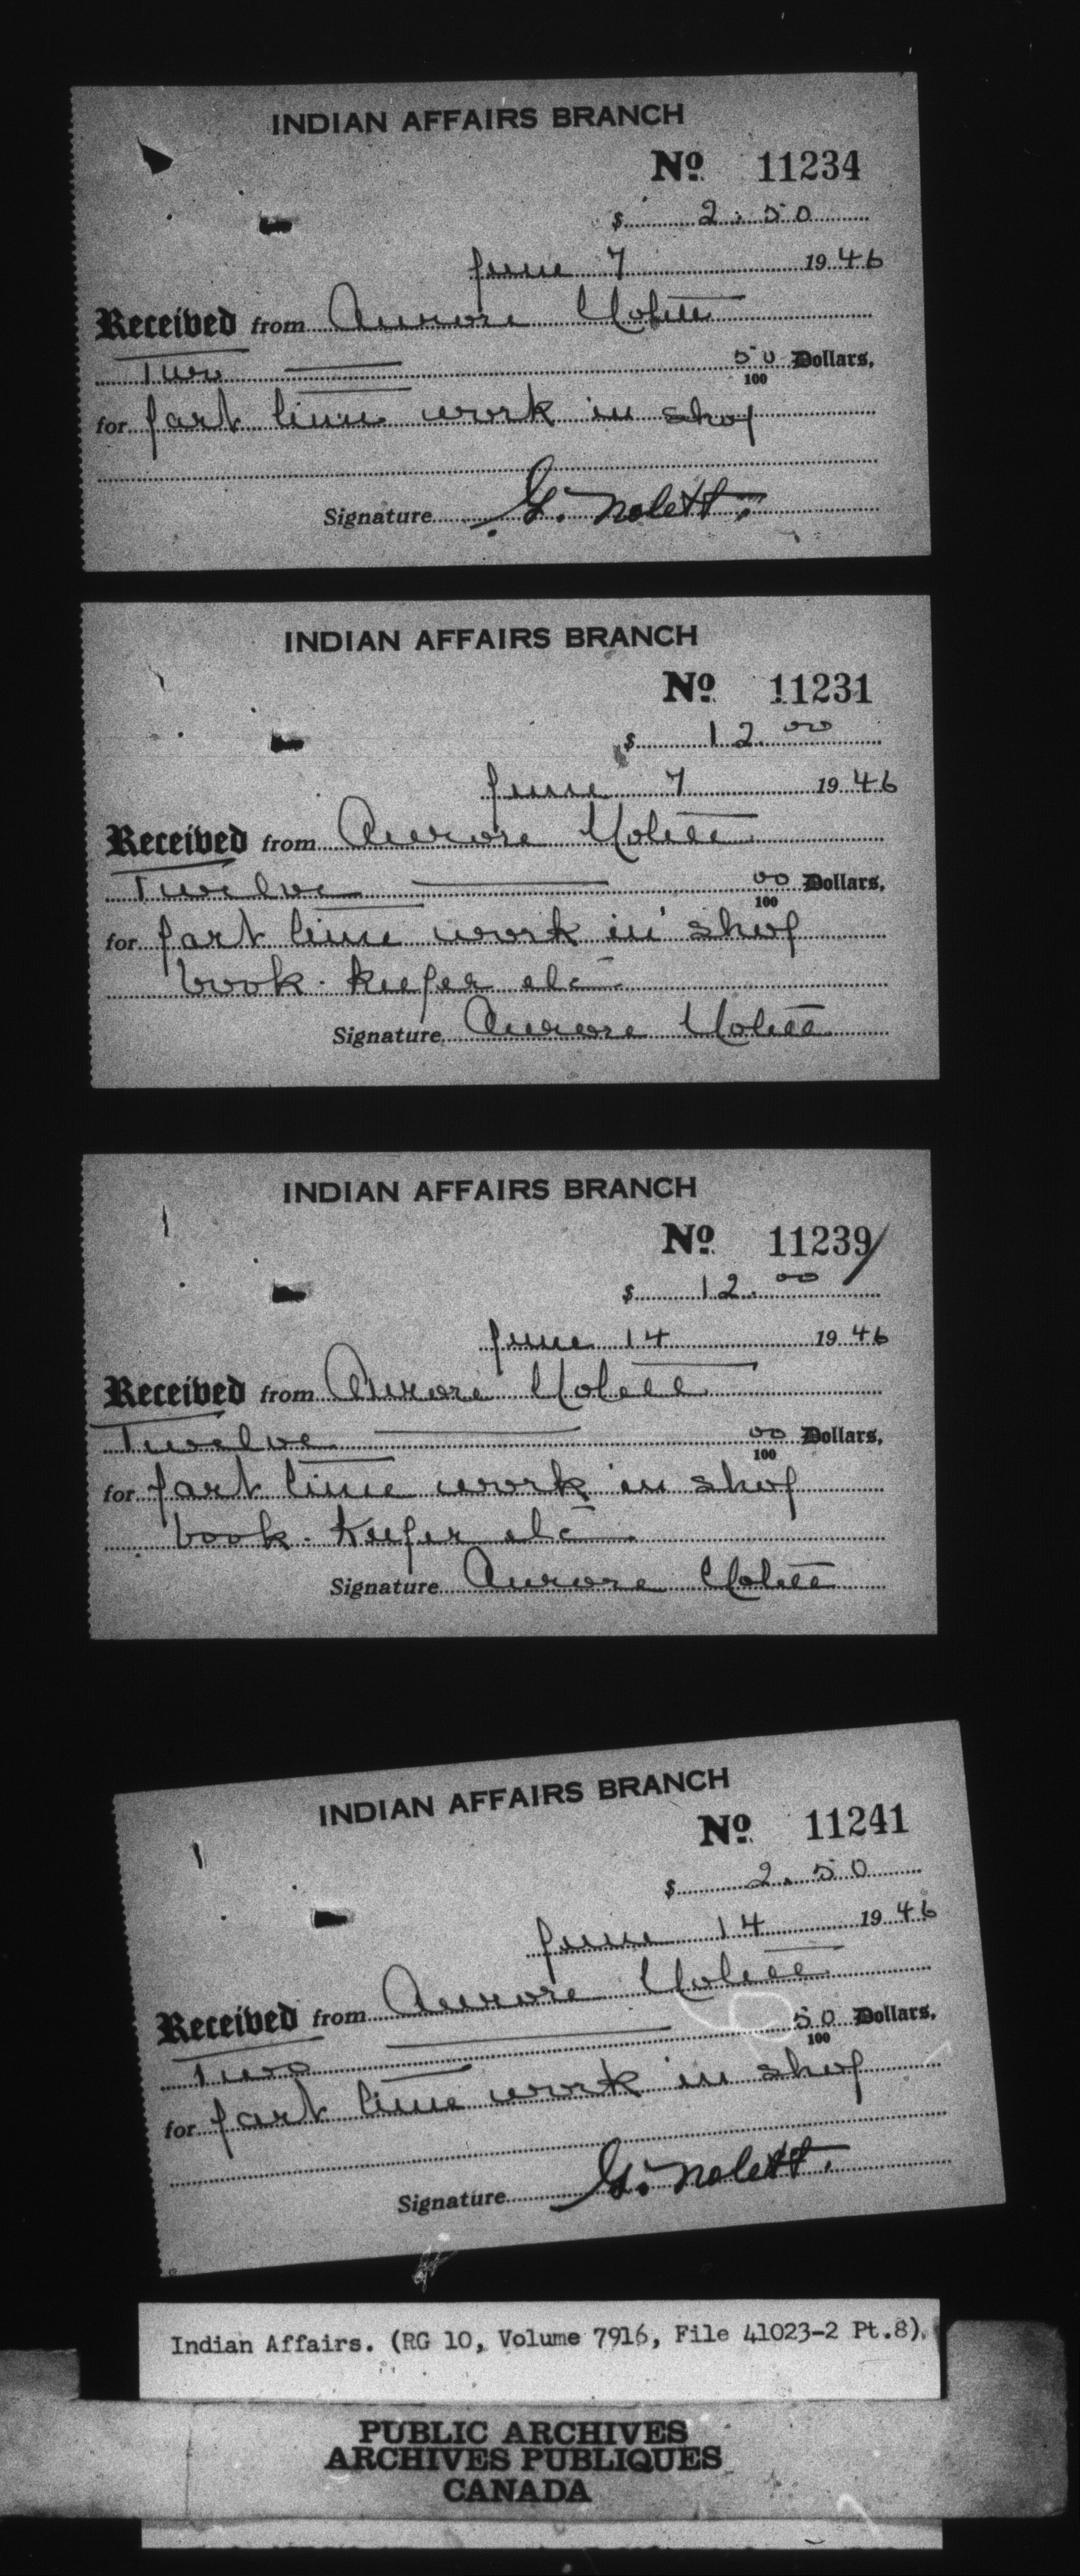 INDIAN AFFAIRS BRANCH
Nº 11234
$ 2.50
June 7 1946
Received from Aurore Nolett
Two 50/100 Dollars,
for part time work in shop
Signature G. Nolett.
INDIAN AFFAIRS BRANCH
Nº 11231
$ 12.00
June 7 1946
Received from Aurore Nolett
Twelve 00/100 Dollars,
for part time work in shop
book-keeper etc
Signature Aurore Nolett
INDIAN AFFAIRS BRANCH
Nº 11239
$ 12.00
June 14 1946
Received from Aurore Nolett
Twelve 00/100 Dollars,
for part time work in shop
book-keeper etc
Signature Aurore Nolett
INDIAN AFFAIRS BRANCH
Nº 11241
$ 2.50
June 14 1946
Received from Aurore Nolett
Two 50/100 Dollars,
for part time work in shop
Signature G. Nolett.
Indian Affairs. (RG 10, Volume 7916, File 41023-2 Pt.8).
PUBLIC ARCHIVES
ARCHIVES PUBLIQUES
CANADA